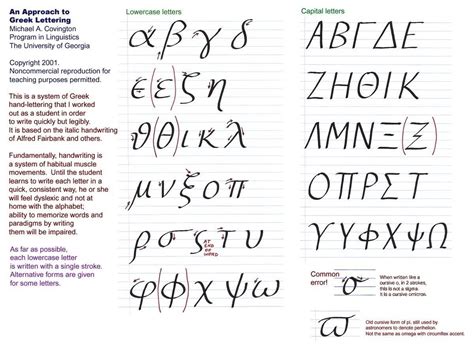 An Approach to
Greek Lettering
Michael A. Covington
Program in Linguistics
The University of Georgia
Copyright 2001.
Noncommercial reproduction for
teaching purposes permitted.
This is a system of Greek
hand-lettering that I worked
out as a student in order
to write quickly but legibly.
It is based on the italic handwriting
of Alfred Fairbank and others.
Fundamentally, handwriting is
a system of habitual muscle
movements. Until the student
learns to write each letter in a
quick, consistent way, he or she
will feel dyslexic and not at
home with the alphabet;
ability to memorize words and
paradigms by writing
them will be impaired.
As far as possible,
each lowercase letter
is written with a single stroke.
Alternative forms are given
for some letters.
Lowercase letters
α β γ δ
ϵ (ε) ζ η
ϑ (θ) ι κ λ
μ ν ξ ο π
ρ σ ς τ υ
AT
END OF
WORD
φ (ϕ) χ ψ ω
Capital letters
Α Β Γ Δ Ε
Ζ Η Θ Ι Κ
Λ Μ Ν Ξ (Ξ)
Ο Π Ρ Σ Τ
Υ Φ Χ Ψ Ω
Common
error!
σ
When written like a
cursive o, in 2 strokes,
this is not a sigma.
It is a cursive omicron.
ϖ
Old cursive form of pi, still used by
astronomers to denote perihelion.
Not the same as omega with circumflex accent.